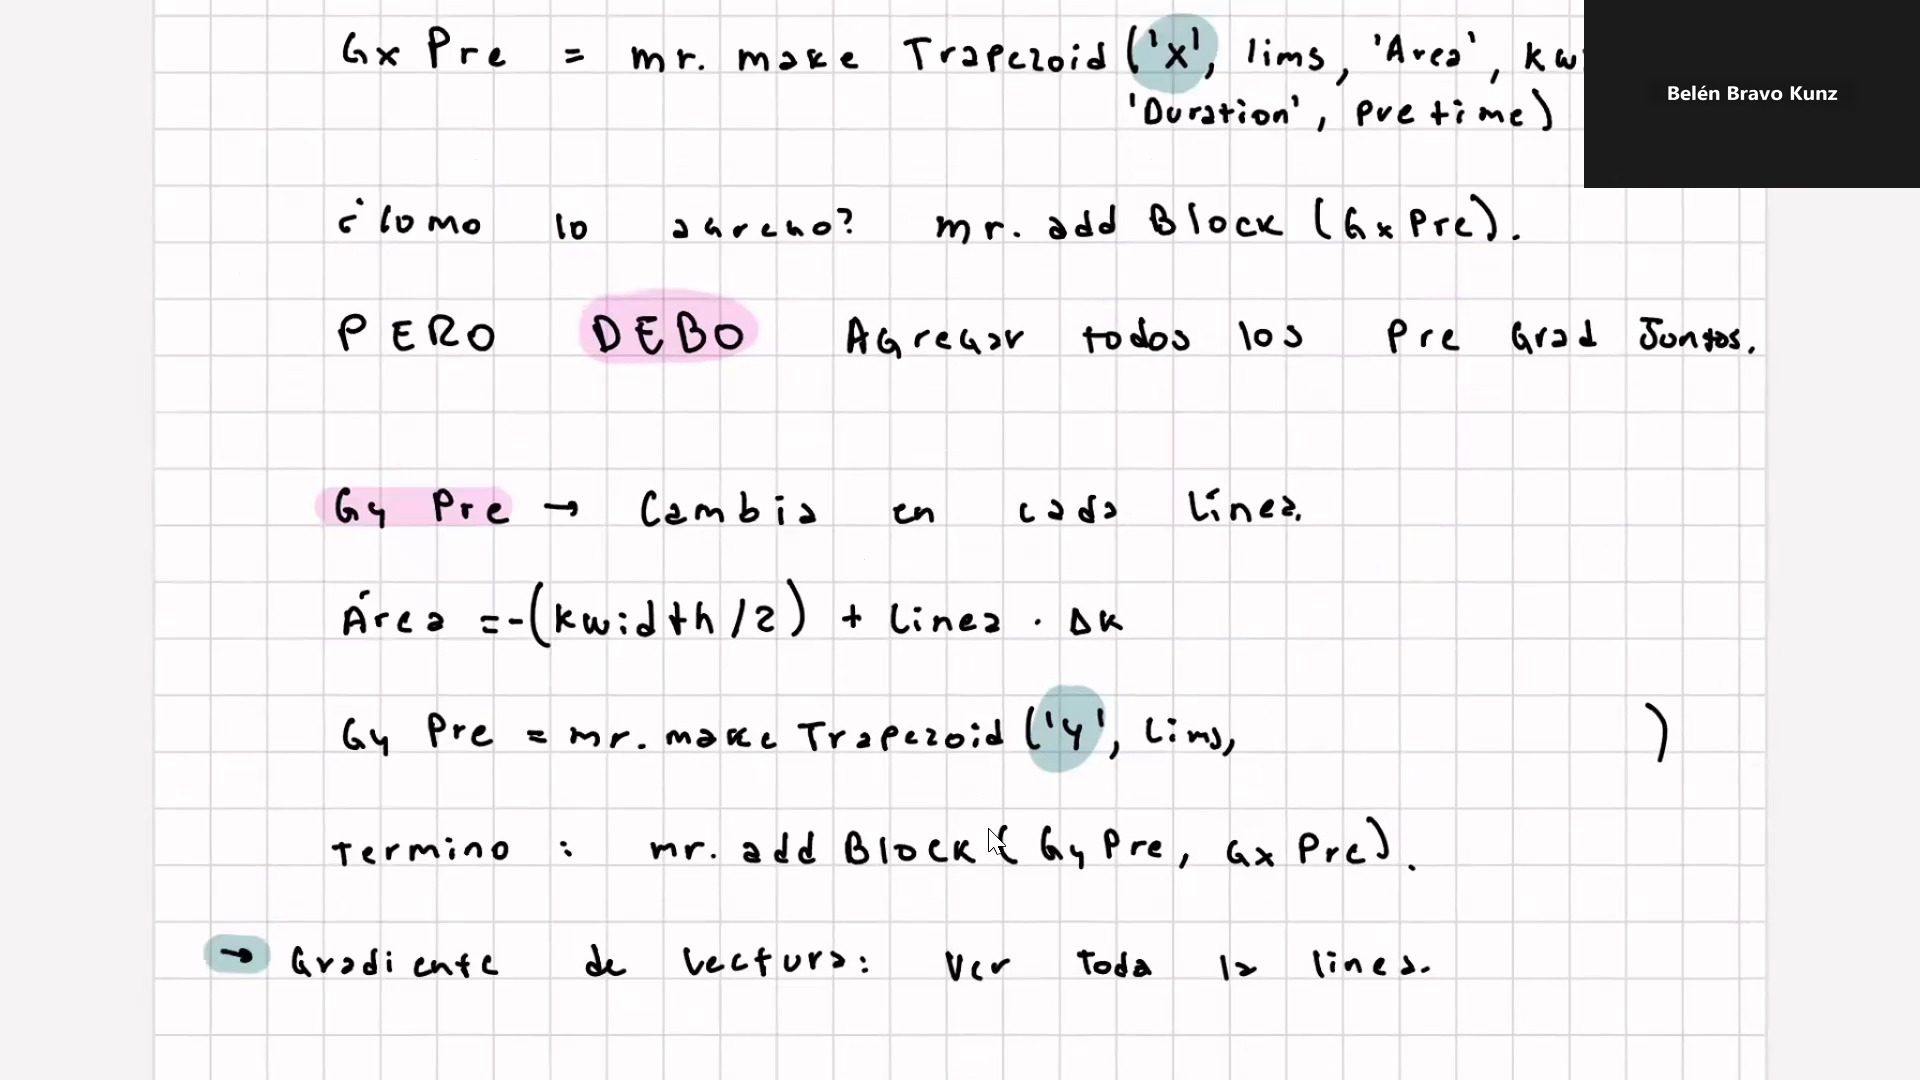 Gx Pre = mr. make Trapezoid ('x', lims, 'Area', kw
'Duration', pretime)
Belén Bravo Kunz
¿Como lo agrego? mr. add Block (Gx Pre).
PERO DEBO Agregar todos los Pre Grad Juntos.
Gy Pre → Cambia en cada línea.
Área = -(kwidth/2) + linea · Δk
Gy Pre = mr. make Trapezoid ('y', lims, )
termino : mr. add Block (Gy Pre, Gx Pre).
→ Gradiente de lectura: Ver toda la linea.